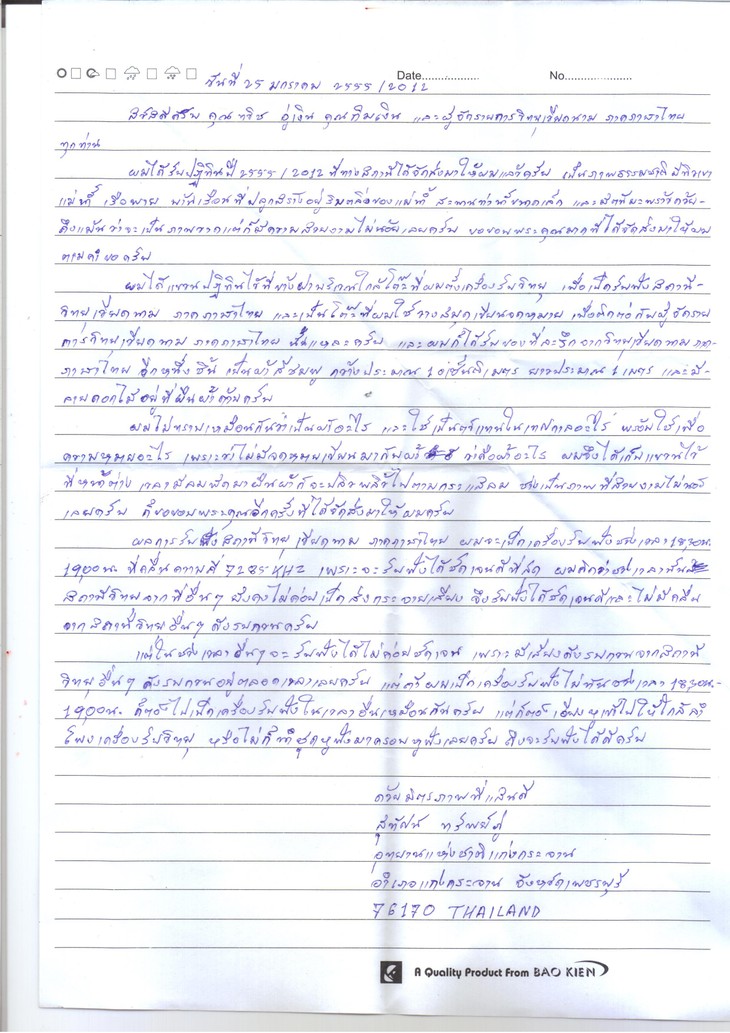 Date................. No....................
วันที่ 25 มกราคม 2555/2012
สวัสดีครับ คุณ อู่เงิน คุณทิมเงิน และผู้จัดรายการวิทยุเวียดนาม ภาคภาษาไทย
ทุกท่าน
ผมได้รับปฏิทินปี 2555/2012 ที่ทางสถานีได้จัดส่งมาให้ผมแล้วครับ เป็นภาพธรรมชาติ มีทิวเขา
แม่น้ำ เรือพาย บ้านเรือนที่ปลูกสร้างอยู่ริมตลิ่งของแม่น้ำ สะพานท่าน้ำขนาดเล็ก และ
ถึงแม้นว่าจะเป็นภาพวาดแต่ก็มีความสวยงามไม่น้อยเลยครับ ขอขอบพระคุณมากที่ได้จัดส่งมาให้ผม
ตามคำขอครับ
ผมได้แขวนปฏิทินไว้ที่ข้างฝาบริเวณใกล้โต๊ะที่ผมตั้งเครื่องรับวิทยุ เพื่อเปิดรับฟังสถานี-
วิทยุเวียดนาม ภาคภาษาไทย และเป็นโต๊ะที่ผมใช้วางสมุดเขียนจดหมาย เพื่อติดต่อกับผู้จัดราย
การวิทยุเวียดนาม ภาคภาษาไทย นั้นแหละครับ และผมก็ได้รับของที่ระลึกจากวิทยุเวียดนาม ภาค-
ภาษาไทย อีกหนึ่งชิ้น เป็นผ้าสีชมพู กว้างประมาณ 10 เซ็นติเมตร ยาวประมาณ 1 เมตร และมี
ลายดอกไม้อยู่ที่ผืนผ้าด้วยครับ
ผมไม่ทราบเหมือนกันว่าเป็นผ้าอะไร และใช้เป็นตัวแทนในเทศกาลอะไร พร้อมใช้เพื่อ
ความหมายอะไร เพราะว่าไม่มีจดหมายเขียนมากับผ้า ว่าคือผ้าอะไร ผมจึงได้เก็บแขวนไว้
ที่หน้าต่าง เวลามีลมพัดมาผืนผ้าก็จะปลิวพลิ้วไปตามกระแสลม ช่างเป็นภาพที่สวยงามไม่น้อย
เลยครับ ก็ขอขอบพระคุณอีกครั้งที่ได้จัดส่งมาให้ผมครับ
ผลการรับฟังสถานีวิทยุเวียดนาม ภาคภาษาไทย ผมจะเปิดเครื่องรับฟังช่วงเวลา 1830น.
1900น. ที่คลื่นความถี่ 7285 KHZ เพราะจะรับฟังได้ชัดเจนดีที่สุด ผมคิดว่าช่วงเวลานั้น
สถานีวิทยุจากที่อื่นๆ ยังคงไม่ค่อยเปิดส่งกระจายเสียง จึงรับฟังได้ชัดเจนดีและไม่มีคลื่น
จากสถานีวิทยุอื่นๆ ดังรบกวนครับ
แต่ในช่วงเวลาอื่นๆ จะรับฟังได้ไม่ค่อยชัดเจน เพราะมีเสียงดังรบกวนจากสถานี
วิทยุอื่นๆ ดังรบกวนอยู่ตลอดเวลาเลยครับ แต่ถ้าผมเปิดเครื่องรับฟังไม่ทันช่วงเวลา 1830น.-
1900น. ก็ต้องไปเปิดเครื่องรับฟังในเวลาอื่นเหมือนกันครับ แต่ก็ต้องเอียงหูเข้าไปให้ใกล้ลำ
โพงเครื่องรับวิทยุ หรือไม่ก็หาชุดหูฟังมาครอบหูฟังเลยครับ ถึงจะรับฟังได้ดีครับ
ด้วยมิตรภาพที่แสนดี
สุทัศน์ ทรัพย์ภู่
อุทยานแห่งชาติแก่งกระจาน
อำเภอแก่งกระจาน จังหวัดเพชรบุรี
76170 THAILAND
A Quality Product From BAO KIEN